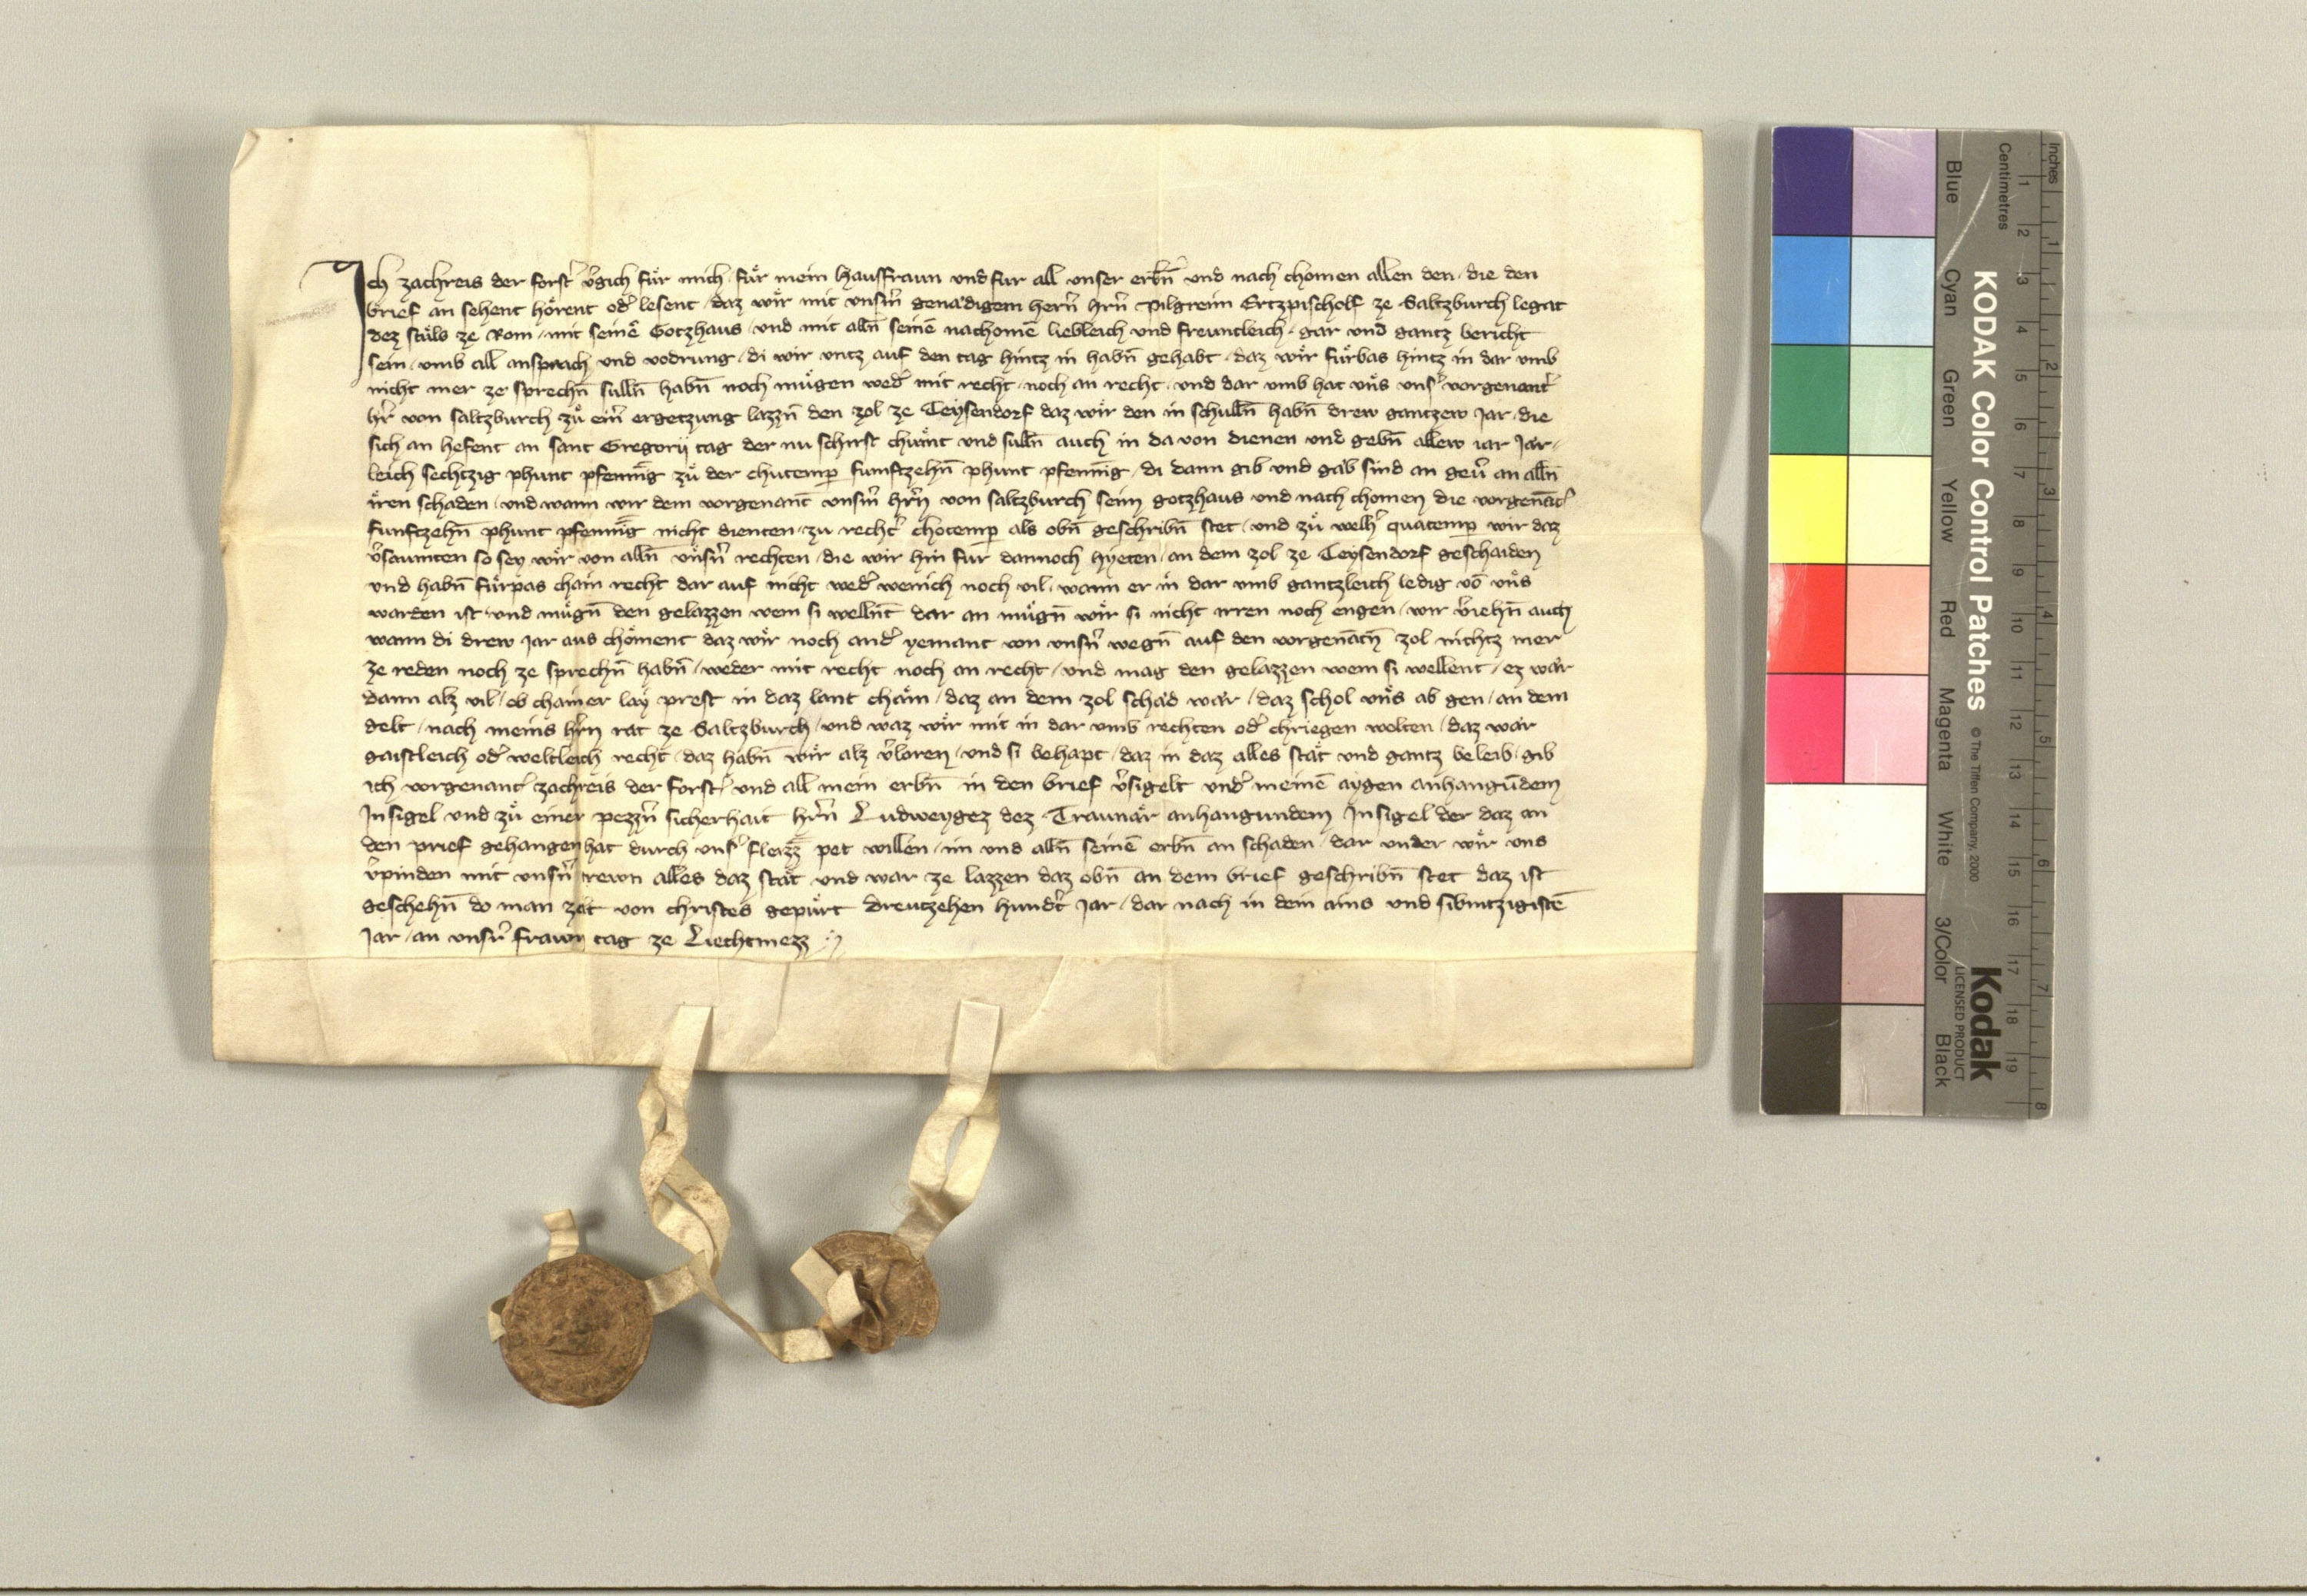 Ich zachreis der forstˀ vˀgich fuͤr mich / fuͤr mein hausfraun und fur all unser erbn̄ und nach chomen allen den / die den
brief an sehent hoͤrent odˀ lesent / daz wiͤr mit unsm̄ genaͤdigem hern̄ hrn̄ Pilgreim Ertzpischolf ze Saltzburch legat
dez stuͤls ze Rom / mit seinē Gotzhaus / und mit alln̄ seinē nachomē liebleich und freuntleich / gar und gantz bericht
sein / umb all ansprach und vodrung / di wir untz auf den tag hintz in habn̄ gehabt / daz wiͤr fuͤrbas hintz in dar umb
nicht mer ze sprechn̄ sulln̄ habn̄ noch muͤgen wedˀ mit recht / noch an recht / und dar umb hat uns unsˀ vorgenantˀ
hrˀ von saltzburch zuͤ ein̄ ergetzung lazzn̄ den zol ze Teysendorf daz wiͤr den in schulln̄ habn̄ drew gantzew Jar / die
sich an hefent an sant Gregorij tag der nu schirst chuͤmt und sulln̄ auch in da von dienen und gebn̄ allew iar Jaͤr /
leich sechtzig phunt pfenning zuͤ der chutemp̄ funftzehn̄ phunt pfenning / di dann gib und gaͤb sind an geuˀ an alln̄
iͤren schaden / und wann wir dem vorgenant̄ unsm̄ hrn̄ von saltzburch seim gotzhaus und nach chomen die vorgenātˀ
funftzehn̄ phunt pfenning nicht dienten / zu rechtˀ chotemp̄ als obn̄ geschribn̄ stet / und zuͤ welhˀ quatemp̄ wir daz
vˀsaumten so sey wiͤr von alln̄ unsn̄ rechten / die wir hin fur dannoch hyeten / an dem zol ze Teysendorf geschaiden
und habn̄ fuͤrpas chain recht dar auf nicht wedˀ wenich noch vil / wann er in dar umb gantzleich ledig vō uns
warden ist / und muͤgn̄ den gelazzen wem si wellnt̄ dar an muͤgn̄ wiͤr si nicht irren noch engen / wir vˀiehn̄ auch
wann di drew Jar aus choͤment daz wiͤr noch andˀ yemant von unsn̄ wegn̄ auf den vorgenātn̄ zol nichtz mer
ze reden noch ze sprechn̄ habn̄ / weder mit recht noch an recht / und mag den gelazzen wem si wellent / ez waͤr
dann alz vil / ob chainer lay prest in daz lant chaͤm / daz an dem zol schad waͤr / daz schol uns ab gen / an dem
gelt / nach meins hrn̄ rat ze Saltzburch / und waz wiͤr mit in dar umb rechten odˀ chriegen wolten / daz waͤr
gaistleich odˀ weltleich recht / daz habn̄ wiͤr alz vˀloren / und si behapt / daz in daz alles staͤt und gantz beleib / gib
ich vorgenant̄ zachreis der forstˀ / und all mein erbn̄ in den brief vˀsigelt undˀ meinē aygen anhangūdem
Insigel und zuͤ einer pezzn̄ sicherhait hrn̄ Ludweygez dez Traunaͤr anhangundem Insigel der daz an
den prief gehangen hat durch unsˀ fleizz̄ pet willen / im und alln̄ seinē erbn̄ an schaden / dar under wiͤr uns
vˀpinden mit unsn̄ trewn alles daz staͤt und war ze lazzen daz obn̄ an dem brief geschribn̄ stet daz ist
geschehn̄ do man zalt von christes gepuͤrt dreutzehen hundˀt Jar / dar nach in dem ains und sibintzigistē
Jar / an unsrˀ frawn tag ze Liechtmezz
KODAK Color Control Patches © The Tiffen Company, 2000
Kodak
LICENSED PRODUCT
Inches 1 2 3 4 5 6 7 8
Centimetres 1 2 3 4 5 6 7 8 9 10 11 12 13 14 15 16 17 18 19
Blue Cyan Green Yellow Red Magenta White 3/Color Black